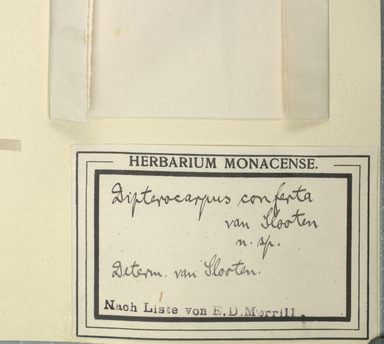 HERBARIUM MONACENSE.
Dipterocarpus conferta
van Slooten
n. sp.
Determ. van Slooten.
Nach Liste von E.D.Merrill.